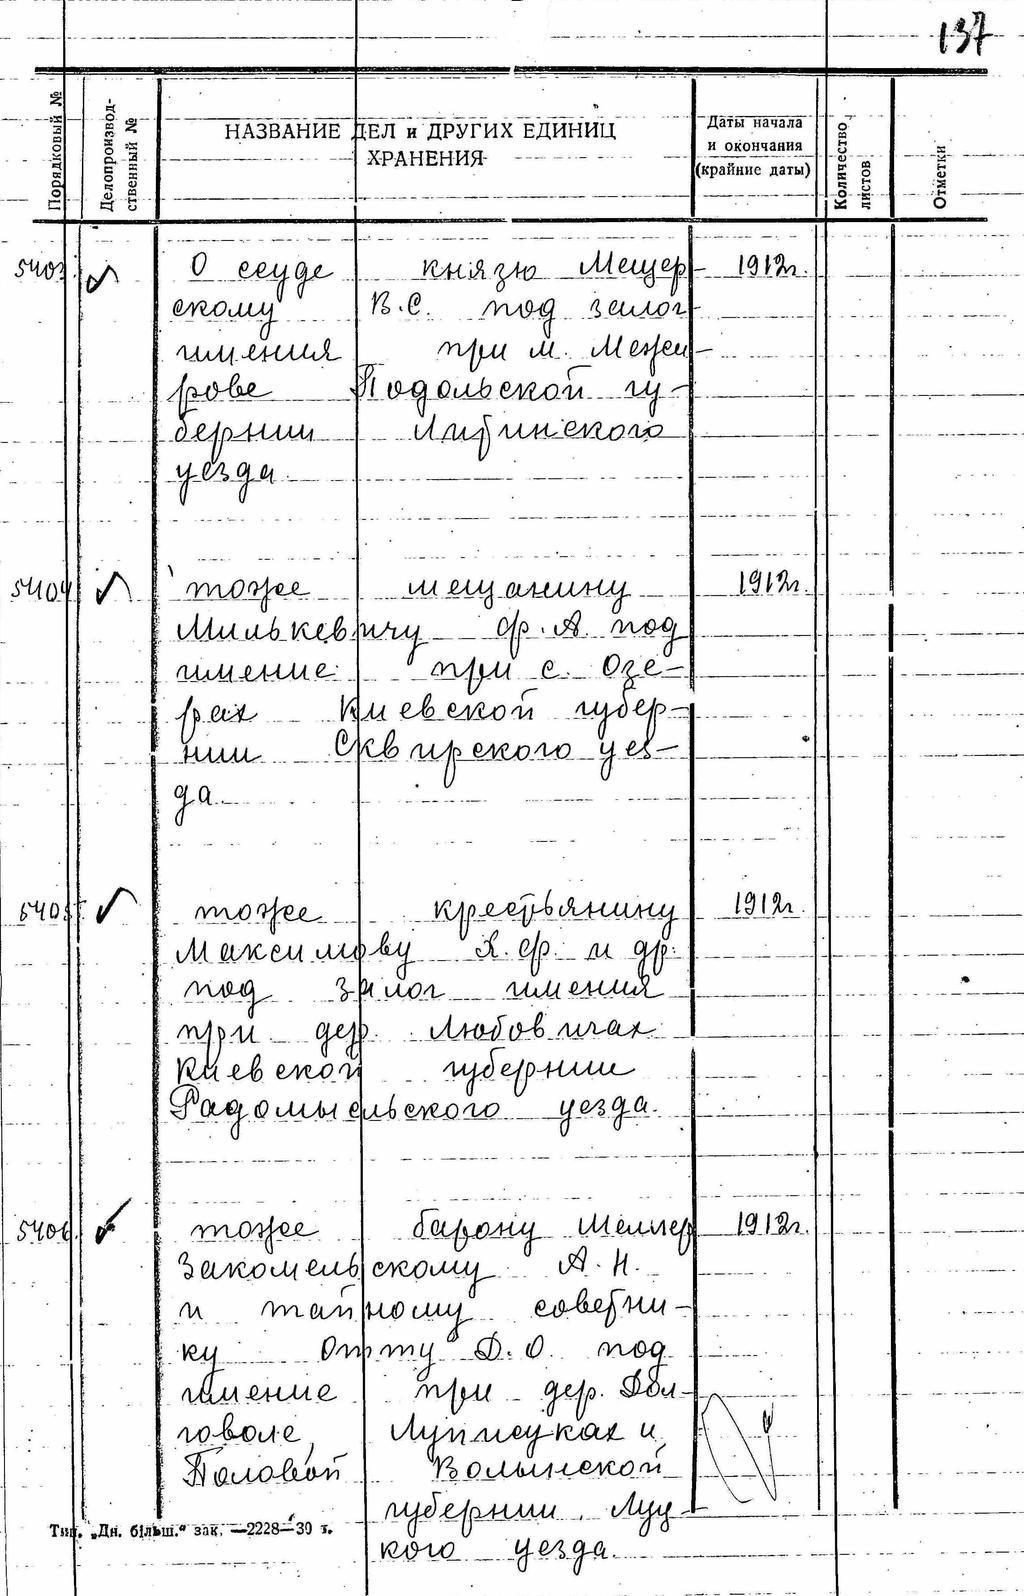 137
Порядковый №
Делопроизвод-
ственный №
НАЗВАНИЕ ДЕЛ и ДРУГИХ ЕДИНИЦ
ХРАНЕНИЯ
Даты начала
и окончания
(крайние даты)
Количество
листов
Отметки
5403 О ссуде князю Мещер- 1912г.
скому В.С. под залог
имения при м. Межи-
рове Подольской гу-
бернии Литинского
уезда.
5404 тоже мещанину 1912г.
Милькевичу Ф.А. под
имение при с. Озе-
рах Киевской губер-
нии Сквирского уез-
да.
5405 тоже крестьянину 1912г.
Максимову Я.Ф. и др.
под залог имения
при дер. Любовичах
Киевской губернии
Радомысльского уезда.
5406 тоже барону Меллер 1912г.
Закомельскому А.Н.
и тайному советни-
ку Отту Д.О. под
имение при дер. Дол-
говоле, и
Половой Волынской
губернии Луц-
кого уезда.
Тип. „Дн. більш." зак. —2228—30 т.